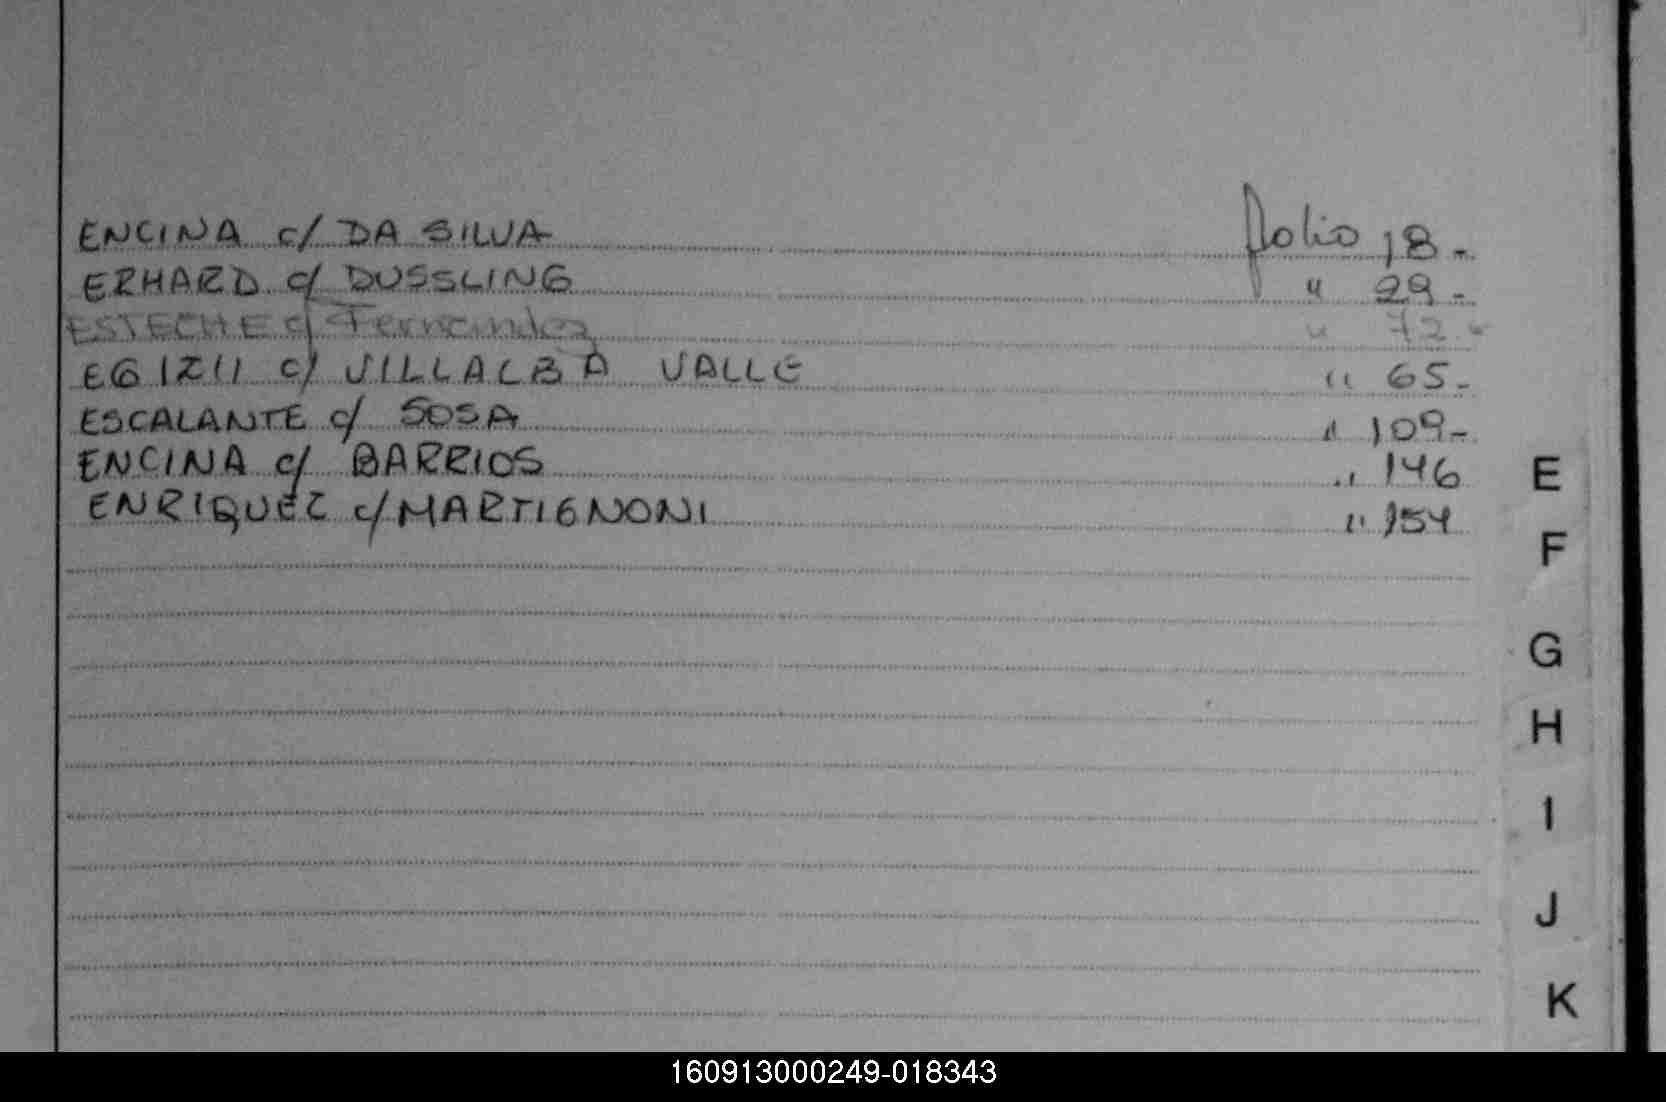 ENCINA c/ DA SILVA folio 18.-
ERHARD c/ DUSSLING " 29.-
ESTECHE c/ Fernandez " 72.-
EGIZII c/ VILLALBA VALLE " 65.-
ESCALANTE c/ SOSA " 109.-
ENCINA c/ BARRIOS " 146
ENRIQUEZ c/ MARTIGNONI " 154
E
F
G
H
I
J
K
160913000249-018343